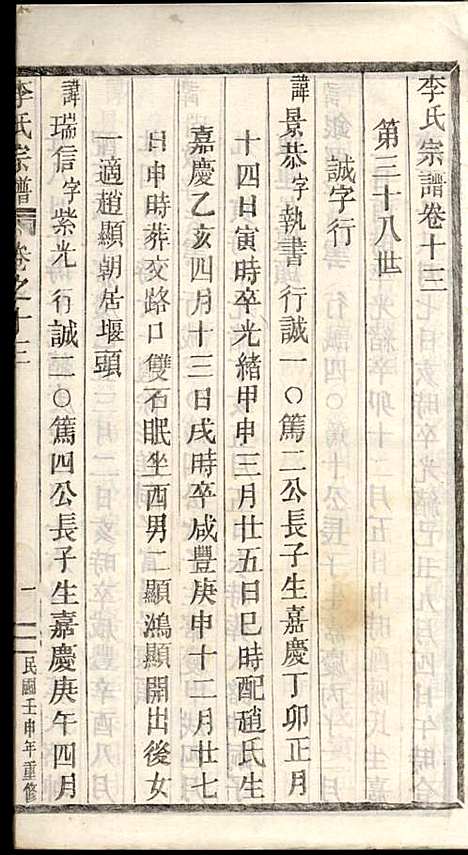 李氏宗譜卷十三
第三十八世
誠字行
諱景恭字執書行誠一〇篤二公長子生嘉慶丁卯正月
十四日寅時卒光緒甲申三月廿五日巳時配趙氏生
嘉慶乙亥四月十三日戌時卒咸豐庚申十二月廿七
日申時葬交路口雙石眠坐酉男二顯鴻顯開出後女
一適趙顯朝居堰頭
諱瑞信字紫光行誠二〇篤四公長子生嘉慶庚午四月
李氏宗譜 卷之十三 一 民國壬申年重修